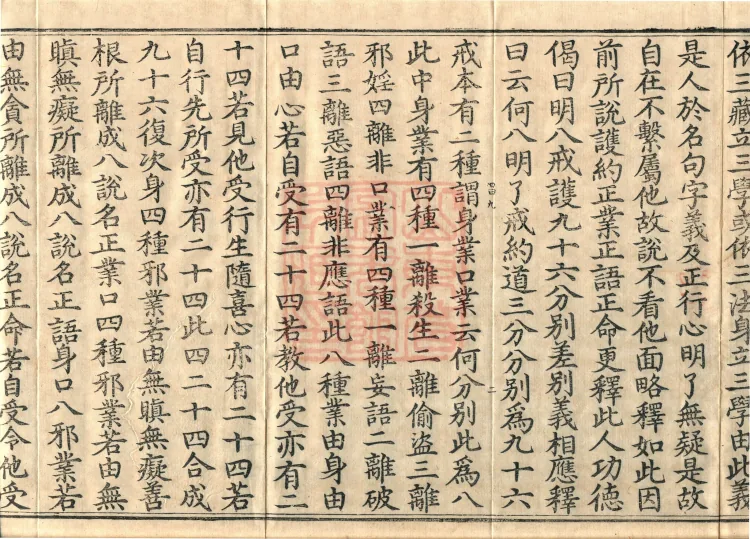 依三藏立三學或依三法身立三學由此義
是人於名句字義及正行心明了無疑是故
自在不繫屬他故說不看他面略釋如此因
前所說護約正業正語正命更釋此人功德
偈曰明八戒護九十六分別差別義相應釋
曰云何八明了戒約道三分分別爲九十六
戒本有二種謂身業口業云何分別此爲八
此中身業有四種一離殺生二離偷盜三離
邪婬四離非口業有四種一離妄語二離破
語三離惡語四離非應語此八種業由身由
口由心若自受有二十四若教他受亦有二
十四若見他受行生隨喜心亦有二十四若
自行先所受亦有二十四此四二十四合成
九十六復次身四種邪業若由無瞋無癡善
根所離成八說名正業口四種邪業若由無
瞋無癡所離成八說名正語身口八邪業若
由無貪所離成八說名正命若自受令他受